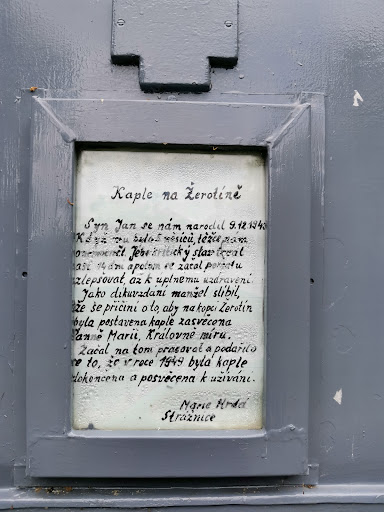 Kaple na Žerotíně
Syn Jan se nám narodil 9.12.194
Když mu bylo měsíců, těžce nám
onemocněl. Jeho kritický stav trval
a potom se začal pomalu
zlepšovat, až k úplnému uzdravení.
Jako díkuvzdání manžel slíbil,
že se přičiní o to, aby na kopci Žerotín
byla postavena kaple zasvěcena
Panně Marii, Královně míru.
Začal na tom pracovat a podařilo
se to, že v roce 1949 byla kaple
dokončena a posvěcena k užívání.
Marie
Strážnice